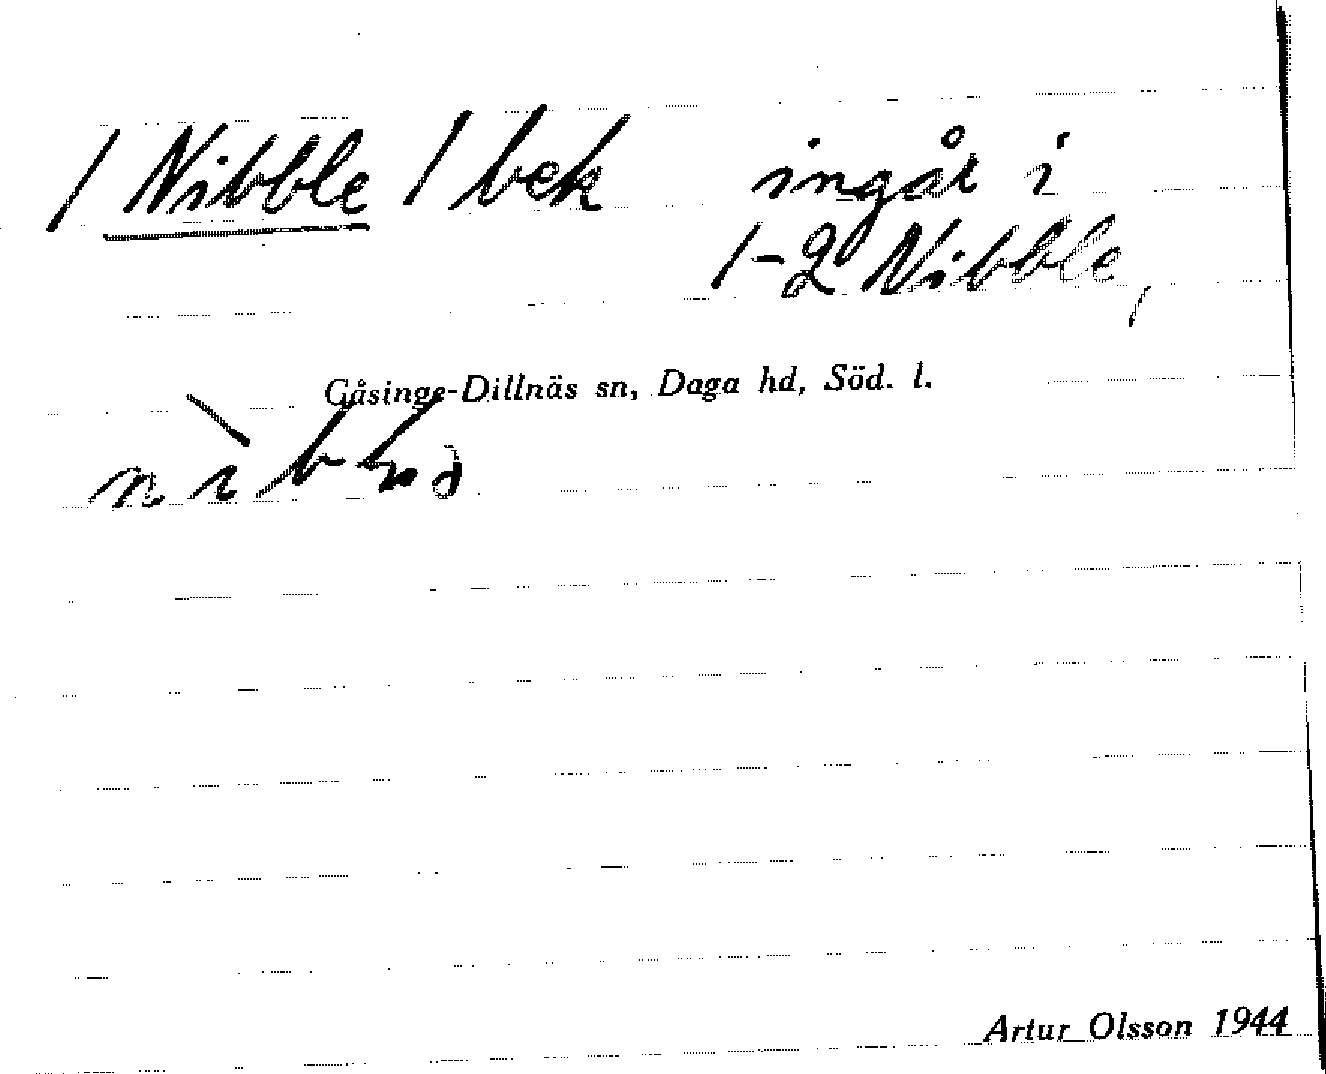 1 Nibble 1 bek ingår i
1-2 Nibble,
Gåsinge-Dillnäs sn, Daga hd, Söd. l.
Artur Olsson 1944